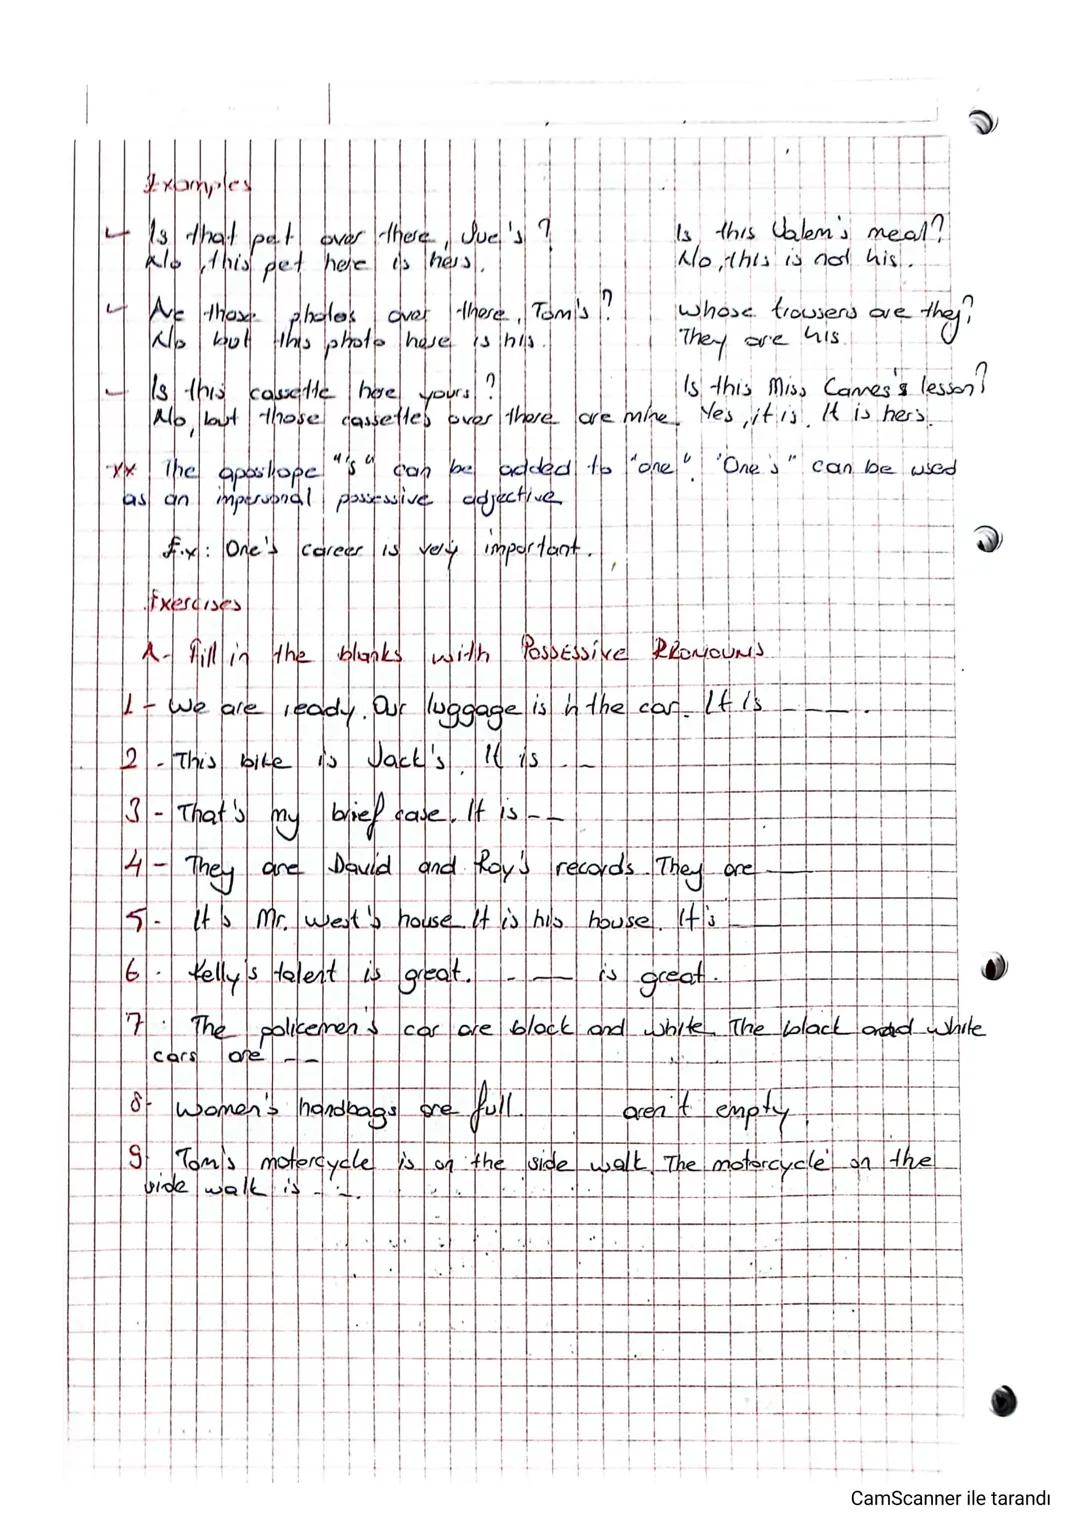 Examples
Is that pet over there, Sue's? Is this Valem's meal?
No, this pet here is hers. No, this is not his.
Are those photos over there, Tom's? whose trousers are they?
No but this photo here is his. They are his.
Is this cassette here yours? Is this Miss Carres's lesson?
No, but those cassettes over there are mine. Yes, it is. It is hers.
xx The apostrope "'s" can be added to "one". "One's" can be used
as an impersonal possessive adjective
Ex: One's career is very important.
Exercises
A- Fill in the blanks with POSSESSive PRONOUNS
1- We are ready. Our luggage is in the car. It is ----.
2- This bike is Jack's. It is --
3- That's my brief case. It is --
4- They are David and Roy's records. They are ——
5- It's Mr. West's house. It is his house. It's
6- Kelly's talent is great. -— is great.
7- The policemen's car are black and white. The black and white
cars are --
8- Women's handbags are full. aren't empty.
9- Tom's motorcycle is on the side walk. The motorcycle on the
side walk is --.
CamScanner ile tarandı